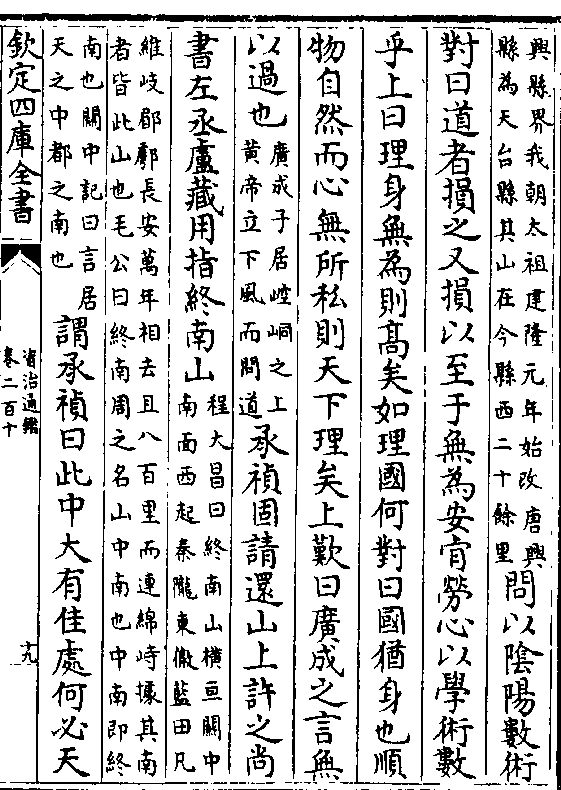 興縣界我朝太祖建隆元年始改唐興
縣為天台縣其山在今縣西二十餘里
問以陰陽數術
對曰道者損之又損以至于無為安肯勞心以學術數
乎上曰理身無為則高矣如理國何對曰國猶身也順
物自然而心無所私則天下理矣上歎曰廣成之言無
以過也
廣成子居崆峒之上
黄帝立下風而問道
承禎固請還山上許之尚
書左丞盧藏用指終南山
程大昌曰終南山横亘關中
南面西起秦隴東徹藍田凡
雍岐郿鄠長安萬年相去且八百里而連綿峙據其南
者皆此山也毛公曰終南周之名山中南也中南即終
南也關中記曰言居
天之中都之南也
謂承禎曰此中大有佳處何必天
欽定四庫全書
資治通鑑
卷二百十
十九